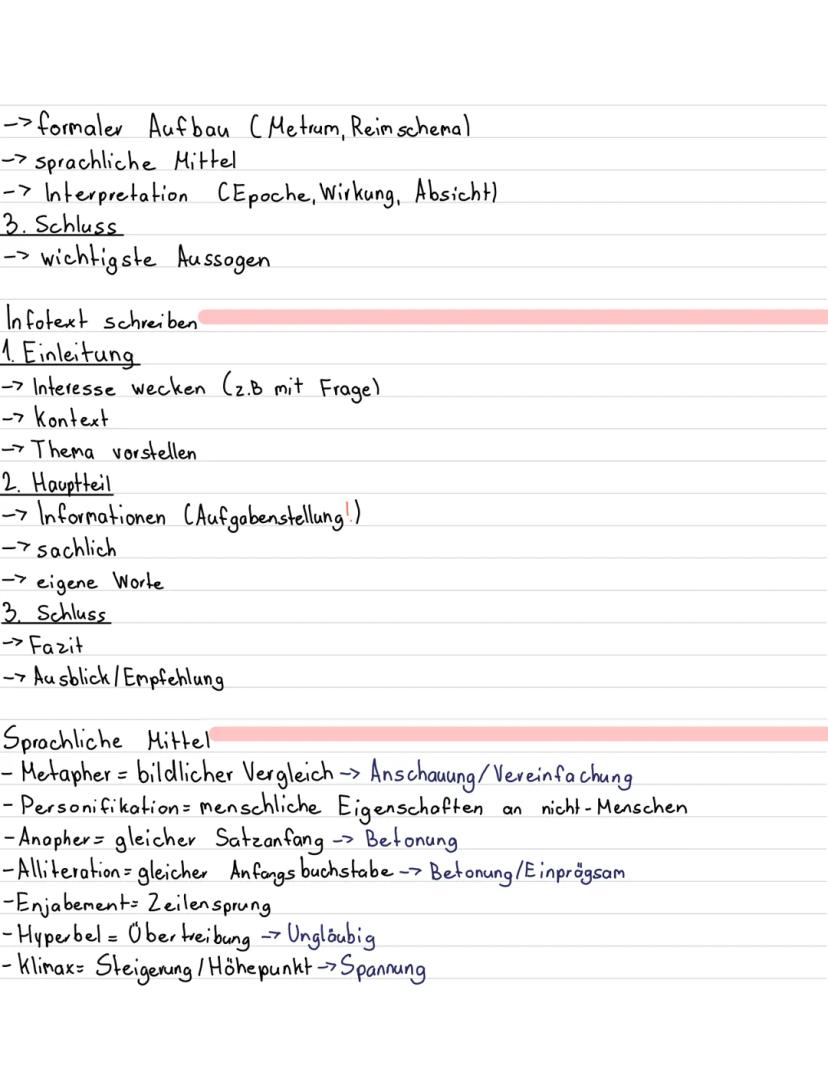 -> formaler Aufbau (Metrum, Reimschema)
-> sprachliche Mittel
-> Interpretation (Epoche, Wirkung, Absicht)
3. Schluss
-> wichtigste Aussagen
Infotext schreiben
1. Einleitung
-> Interesse wecken (z.B mit Frage)
-> Kontext
-> Thema vorstellen
2. Hauptteil
-> Informationen (Aufgabenstellung!)
-> sachlich
-> eigene Worte
3. Schluss
-> Fazit
-> Ausblick/Empfehlung
Sprachliche Mittel
- Metapher = bildlicher Vergleich -> Anschauung/Vereinfachung
- Personifikation = menschliche Eigenschaften an nicht-Menschen
- Anapher = gleicher Satzanfang -> Betonung
- Alliteration = gleicher Anfangsbuchstabe -> Betonung/Einprägsam
- Enjabement = Zeilensprung
- Hyperbel = Übertreibung -> Ungläubig
- Klimax = Steigerung/Höhepunkt -> Spannung